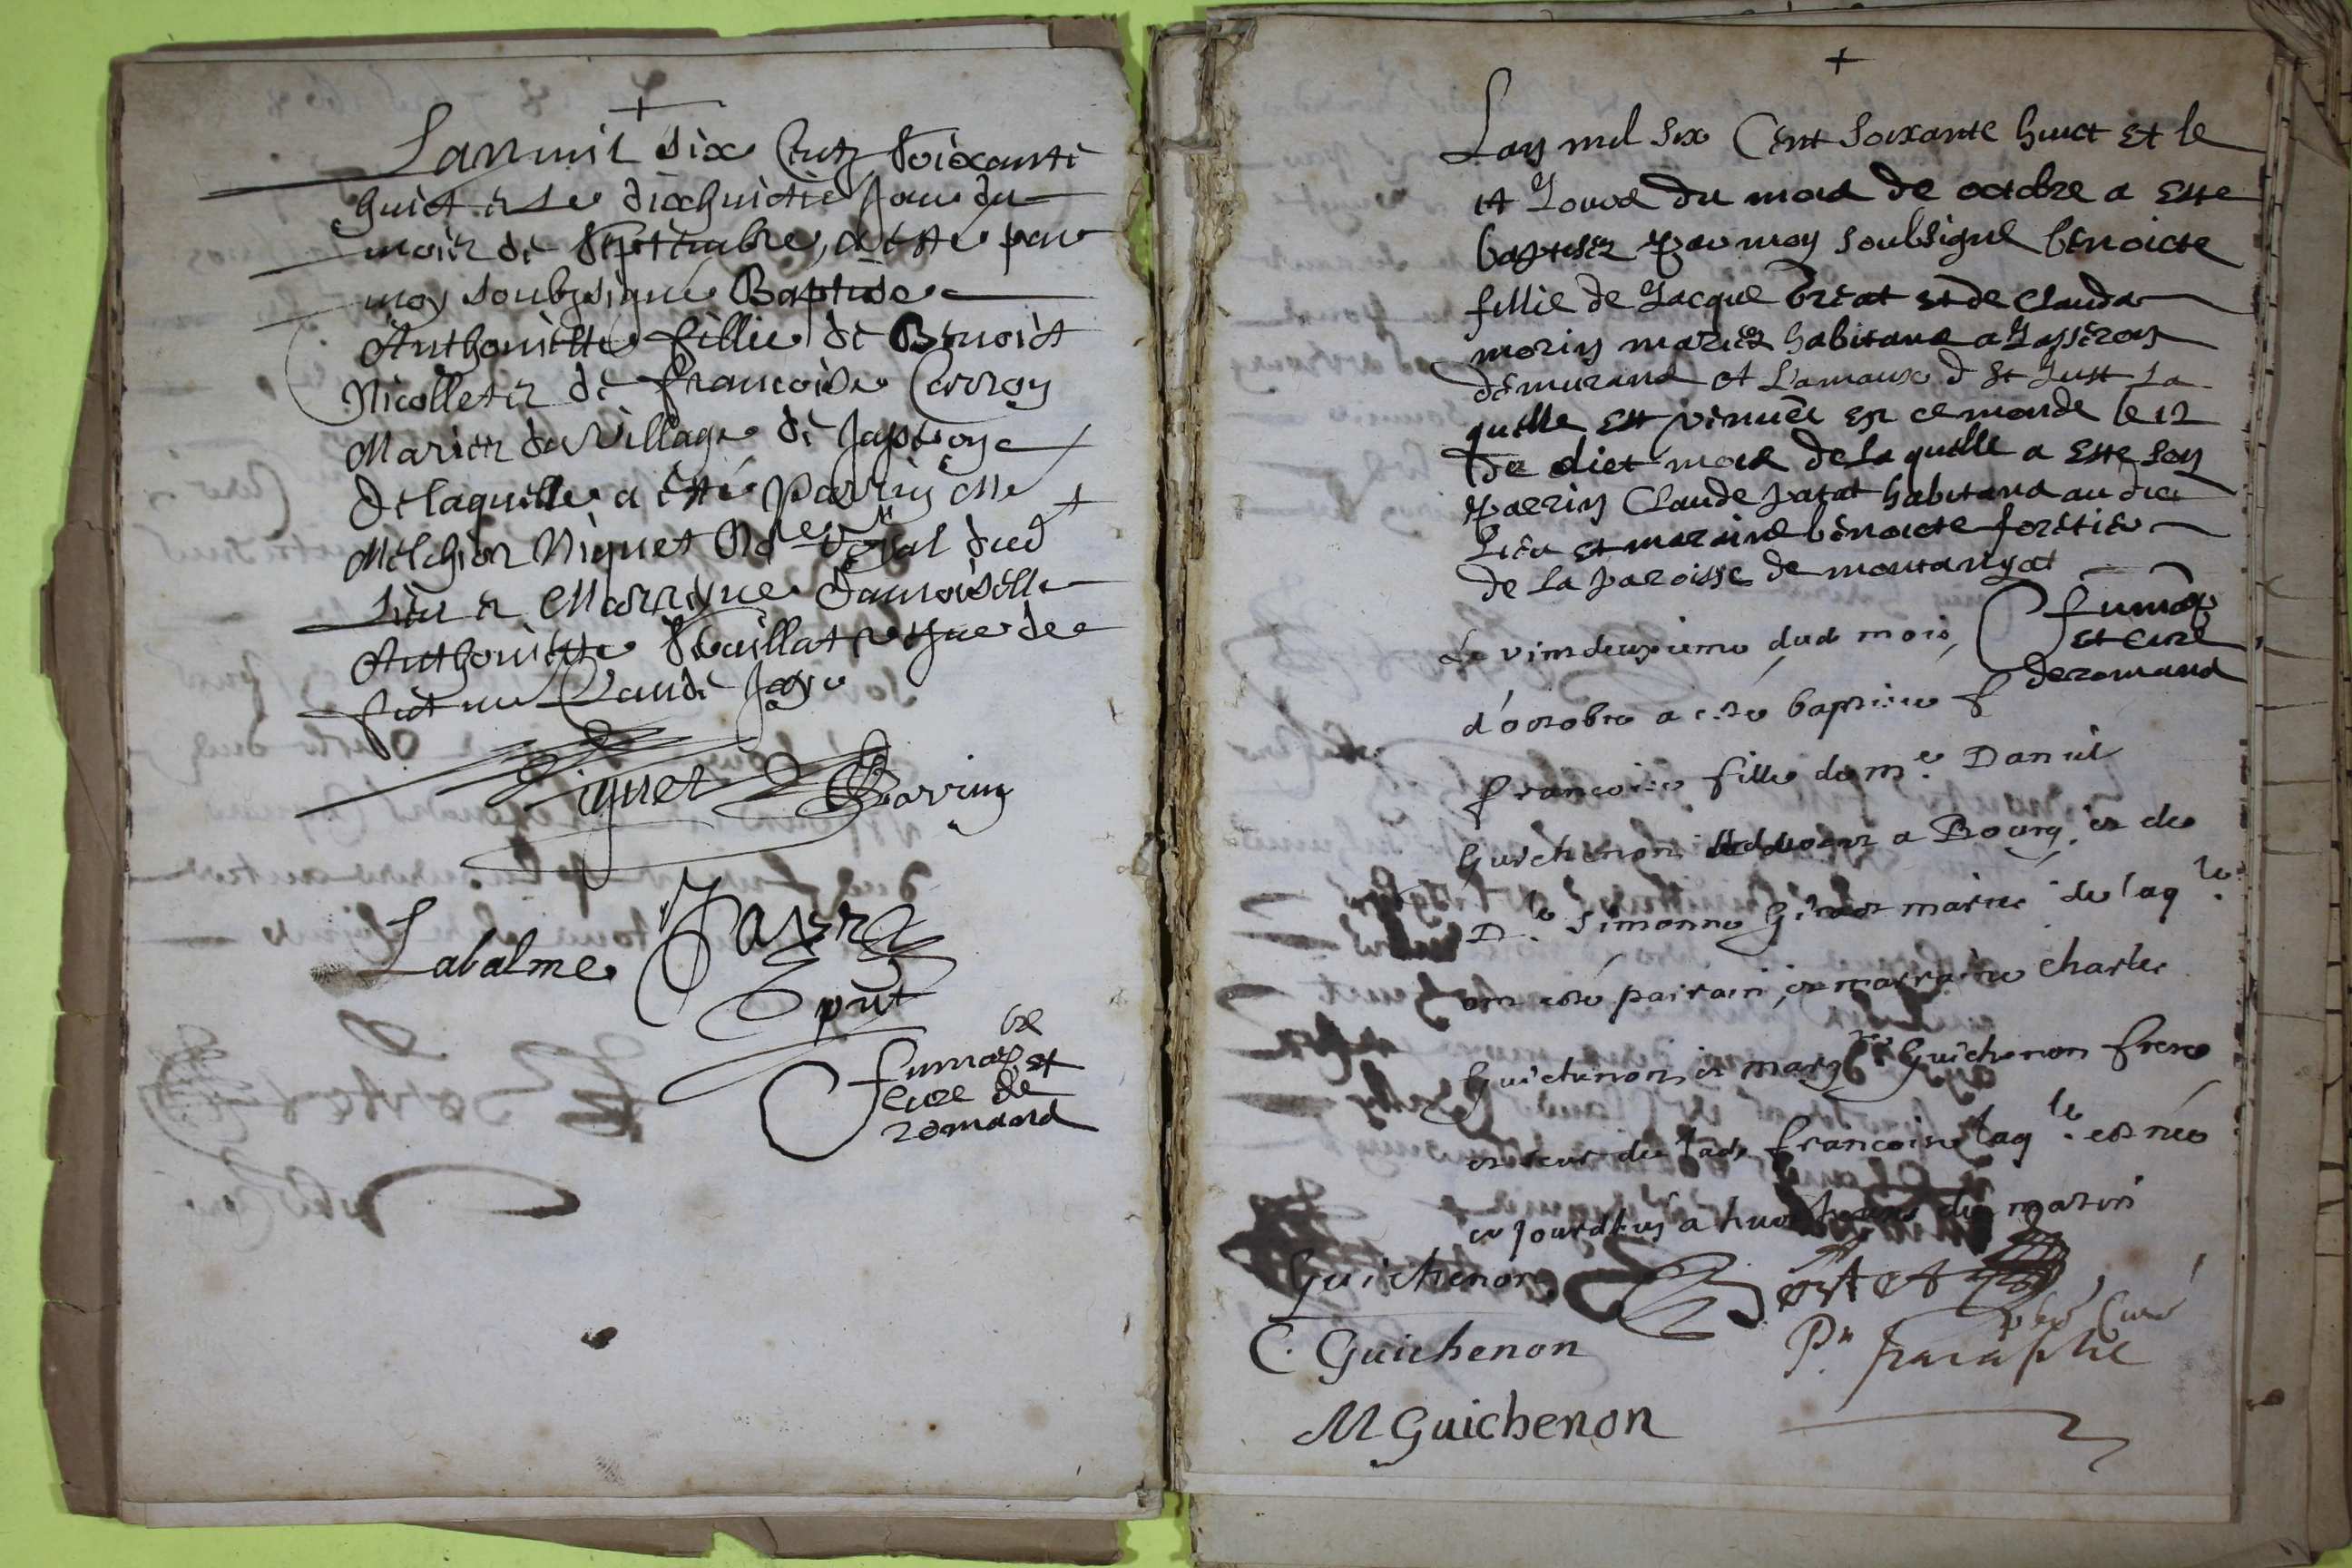 +
Lan mil six Centz Soixante
huict et le dixhuictie Jour du
mois de Septembre, a esté par
moy soubzsigné Baptisé
Anthoinette fillie de Benoict
Nicollet et de francoise Carron
Mariez du Village de
de laquelle a esté Parrin Me
Melchior Niguet No.re Royal dud
Lieu et Marrayne damoiselle
Anthoinette vefue de
feut me Claude
Niguet Parrin
Labalme
pñt
fumat
et
cure de
romand
+
Lan mil six Cent Soixante huict et le
14 Jour du mois de octobre a este
baptisez par moy soubsigne benoicte
fillie de Jacque et de Clauda
morin mariez habitans a
et d St Just La
quelle est venuee en ce monde le 12
du dict mois de la quelle a este son
parrin Claude habitans au dict
Lieu et maraine benoicte
de la paroisse de montangat
fumat
et cure
de romand
Le vindeuxieme dud mois
d'octobre a esté baptisée f
francoise fille de me. Daniel
Guichenon a Bourg, et de
D.le Simonne mariés de laq.le
ont esté pairain, et marraine charles
Guichenon et marg.te Guichenon frere
et seur de lad. francoise laq.le est née
ce jourdhuy a huict heures du matin
Guichenon
C. Guichenon
curé
M Guichenon